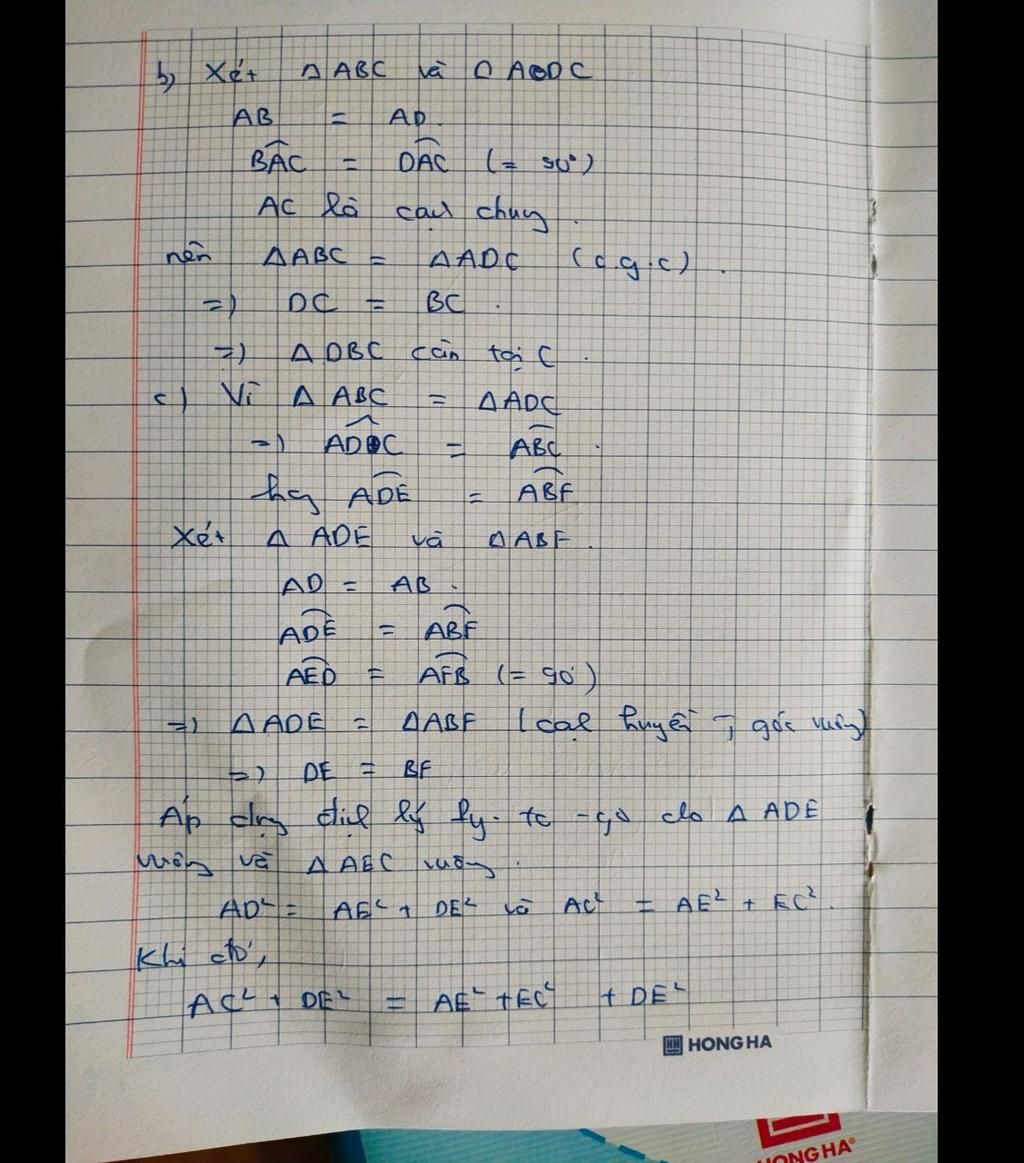 b) Xét Δ ABC và Δ ADC
AB = AD.
BAC = DAC (= 90°)
AC là cạnh chung.
nên ΔABC = ΔADC (c.g.c).
=) DC = BC.
=) Δ DBC cân tại C.
c) Vì Δ ABC = ΔADC
=) ADC = ABC.
hay ADE = ABF
Xét Δ ADE và ΔABF.
AD = AB.
ADE = ABF
AED = AFB (= 90°)
=) ΔADE = ΔABF (cạnh huyền - góc vuông)
=) DE = BF
Áp dụng định lý Py-ta-go cho Δ ADE
vuông và Δ AEC vuông.
AD² = AE² + DE² và AC² = AE² + EC².
Khi đó,
AC² + DE² = AE² + EC² + DE²
HONG HA
HONG HA®